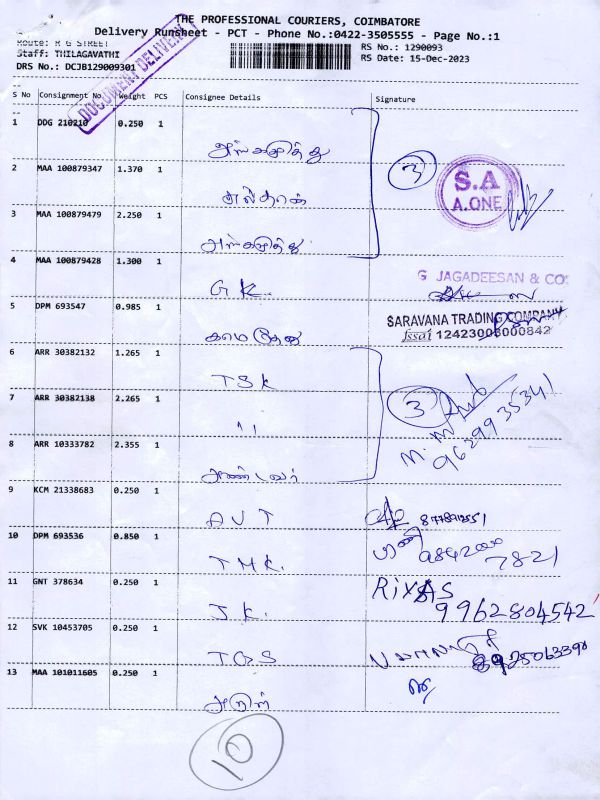 THE PROFESSIONAL COURIERS, COIMBATORE
Delivery Runsheet - PCT - Phone No.:0422-3505555 - Page No.:1
Route: R G STREET
Staff: THILAGAVATHI
DRS No.: DCJB129009301
RS No.: 1290093
RS Date: 15-Dec-2023
DOCUMENT DELIVERY
S No Consignment No. Weight PCS Consignee Details Signature
1 DDG 210210 0.250 1
2 MAA 100879347 1.370 1
3 MAA 100879479 2.250 1
3
S.A
A.ONE
4 MAA 100879428 1.300 1 G K.
G JAGADEESAN & CO
5 DPM 693547 0.985 1 காமதேனு
SARAVANA TRADING COMPANY
fssai 12423008000842
6 ARR 30382132 1.265 1 TSK
7 ARR 30382138 2.265 1 "
8 ARR 10333782 2.355 1 ஆண்டவர்
3
9629935341
9 KCM 21338683 0.250 1 AVT
10 DPM 693536 0.850 1 TMK. 7821
11 GNT 378634 0.250 1 JK.
9962804542
12 SVK 10453705 0.250 1 TGS
13 MAA 101011605 0.250 1 அருள்
10